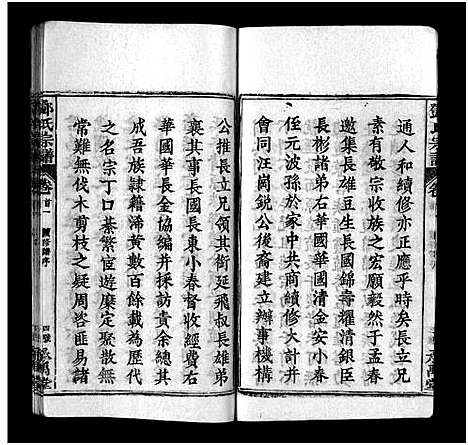 通人和續修亦正應乎時矣長立兄
素有敬宗收族之宏願毅然于孟春
邀集長雄豆生長國錦壽耀清銀臣
長彬諸弟右華國華國清金安小春
侄元波孫於家中共商續修大計并
會同汪崗銳公後裔建立辦事機構
公推長立兄領其銜延飛叔長雄弟
襄其事長國長東小春督收經費右
華國華長金協編并採訪貴余總其
成吾族隸籍浠黄數百餘載歷代
之名宗丁口綦繁宦遊靡定聚散無
常難無伐木剪枝之疑周咨匪易諸
鄧氏宗譜
卷首一
續修譜序
四